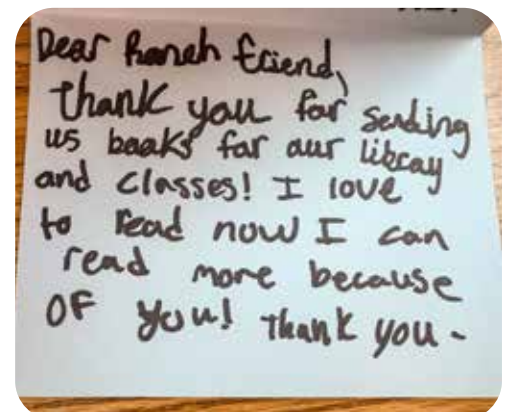 Dear Ranch friend,
Thank you for sending
us books for our libray
and classes! I love
to read now I can
read more because
OF you! Thank you -